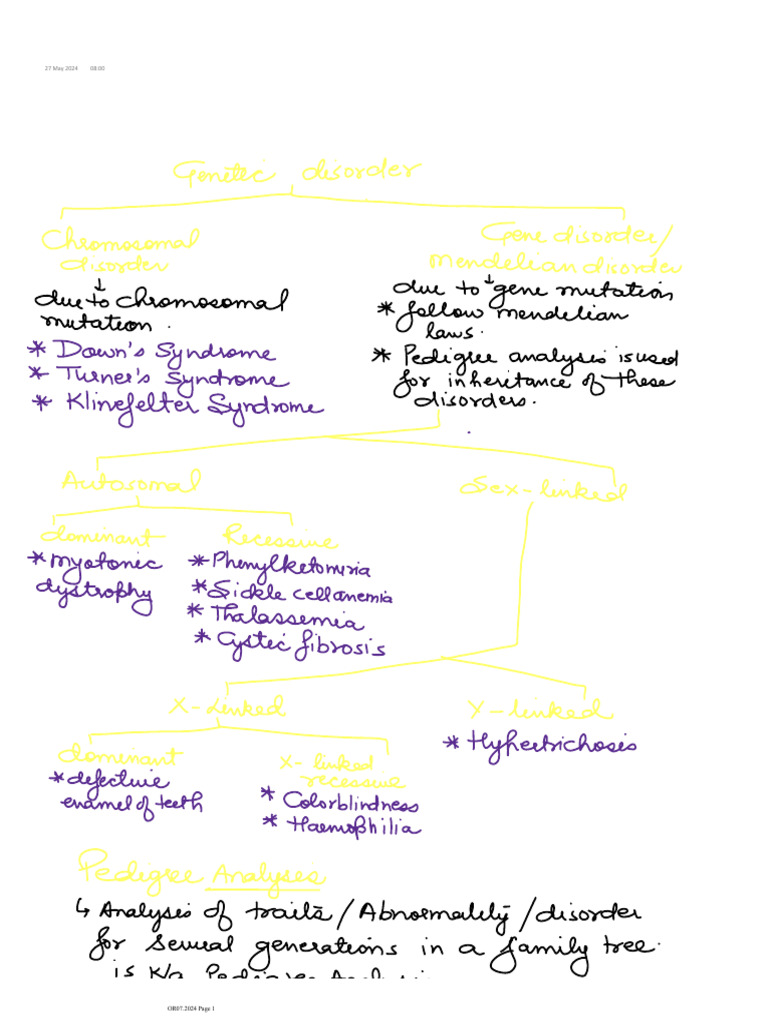 27 May 2024 08:00
Genetic disorder
Chromosomal
disorder
↓
due to chromosomal
mutation.
* Down's Syndrome
* Turner's Syndrome
* Klinefelter Syndrome
Gene disorder/
mendelian disorder
↓
due to gene mutation
* follow mendelian
laws.
* Pedigree analysis is used
for inheritance of these
disorders.
Autosomal
dominant
* myotonic
dystrophy
Recessive
* Phenylketonuria
* Sickle cell anemia
* Thalassemia
* Cystic fibrosis
Sex-linked
X-Linked
dominant
* defective
enamel of teeth
X-linked
recessive
* Colorblindness
* Haemophilia
Y-linked
* Hypertrichosis
Pedigree Analysis
↳ Analysis of traits/Abnormality/disorder
for several generations in a family tree.
is k/a Pedigree Analysis
OR07.2024 Page 1